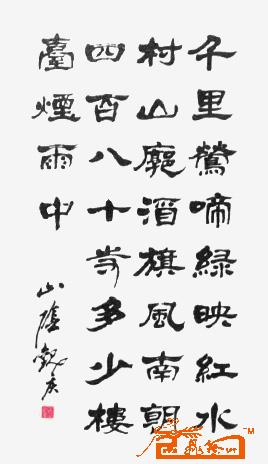 千里鶯啼綠映紅水
村山廓酒旗風南朝
四百八十寺多少樓
臺煙雨中
山陰